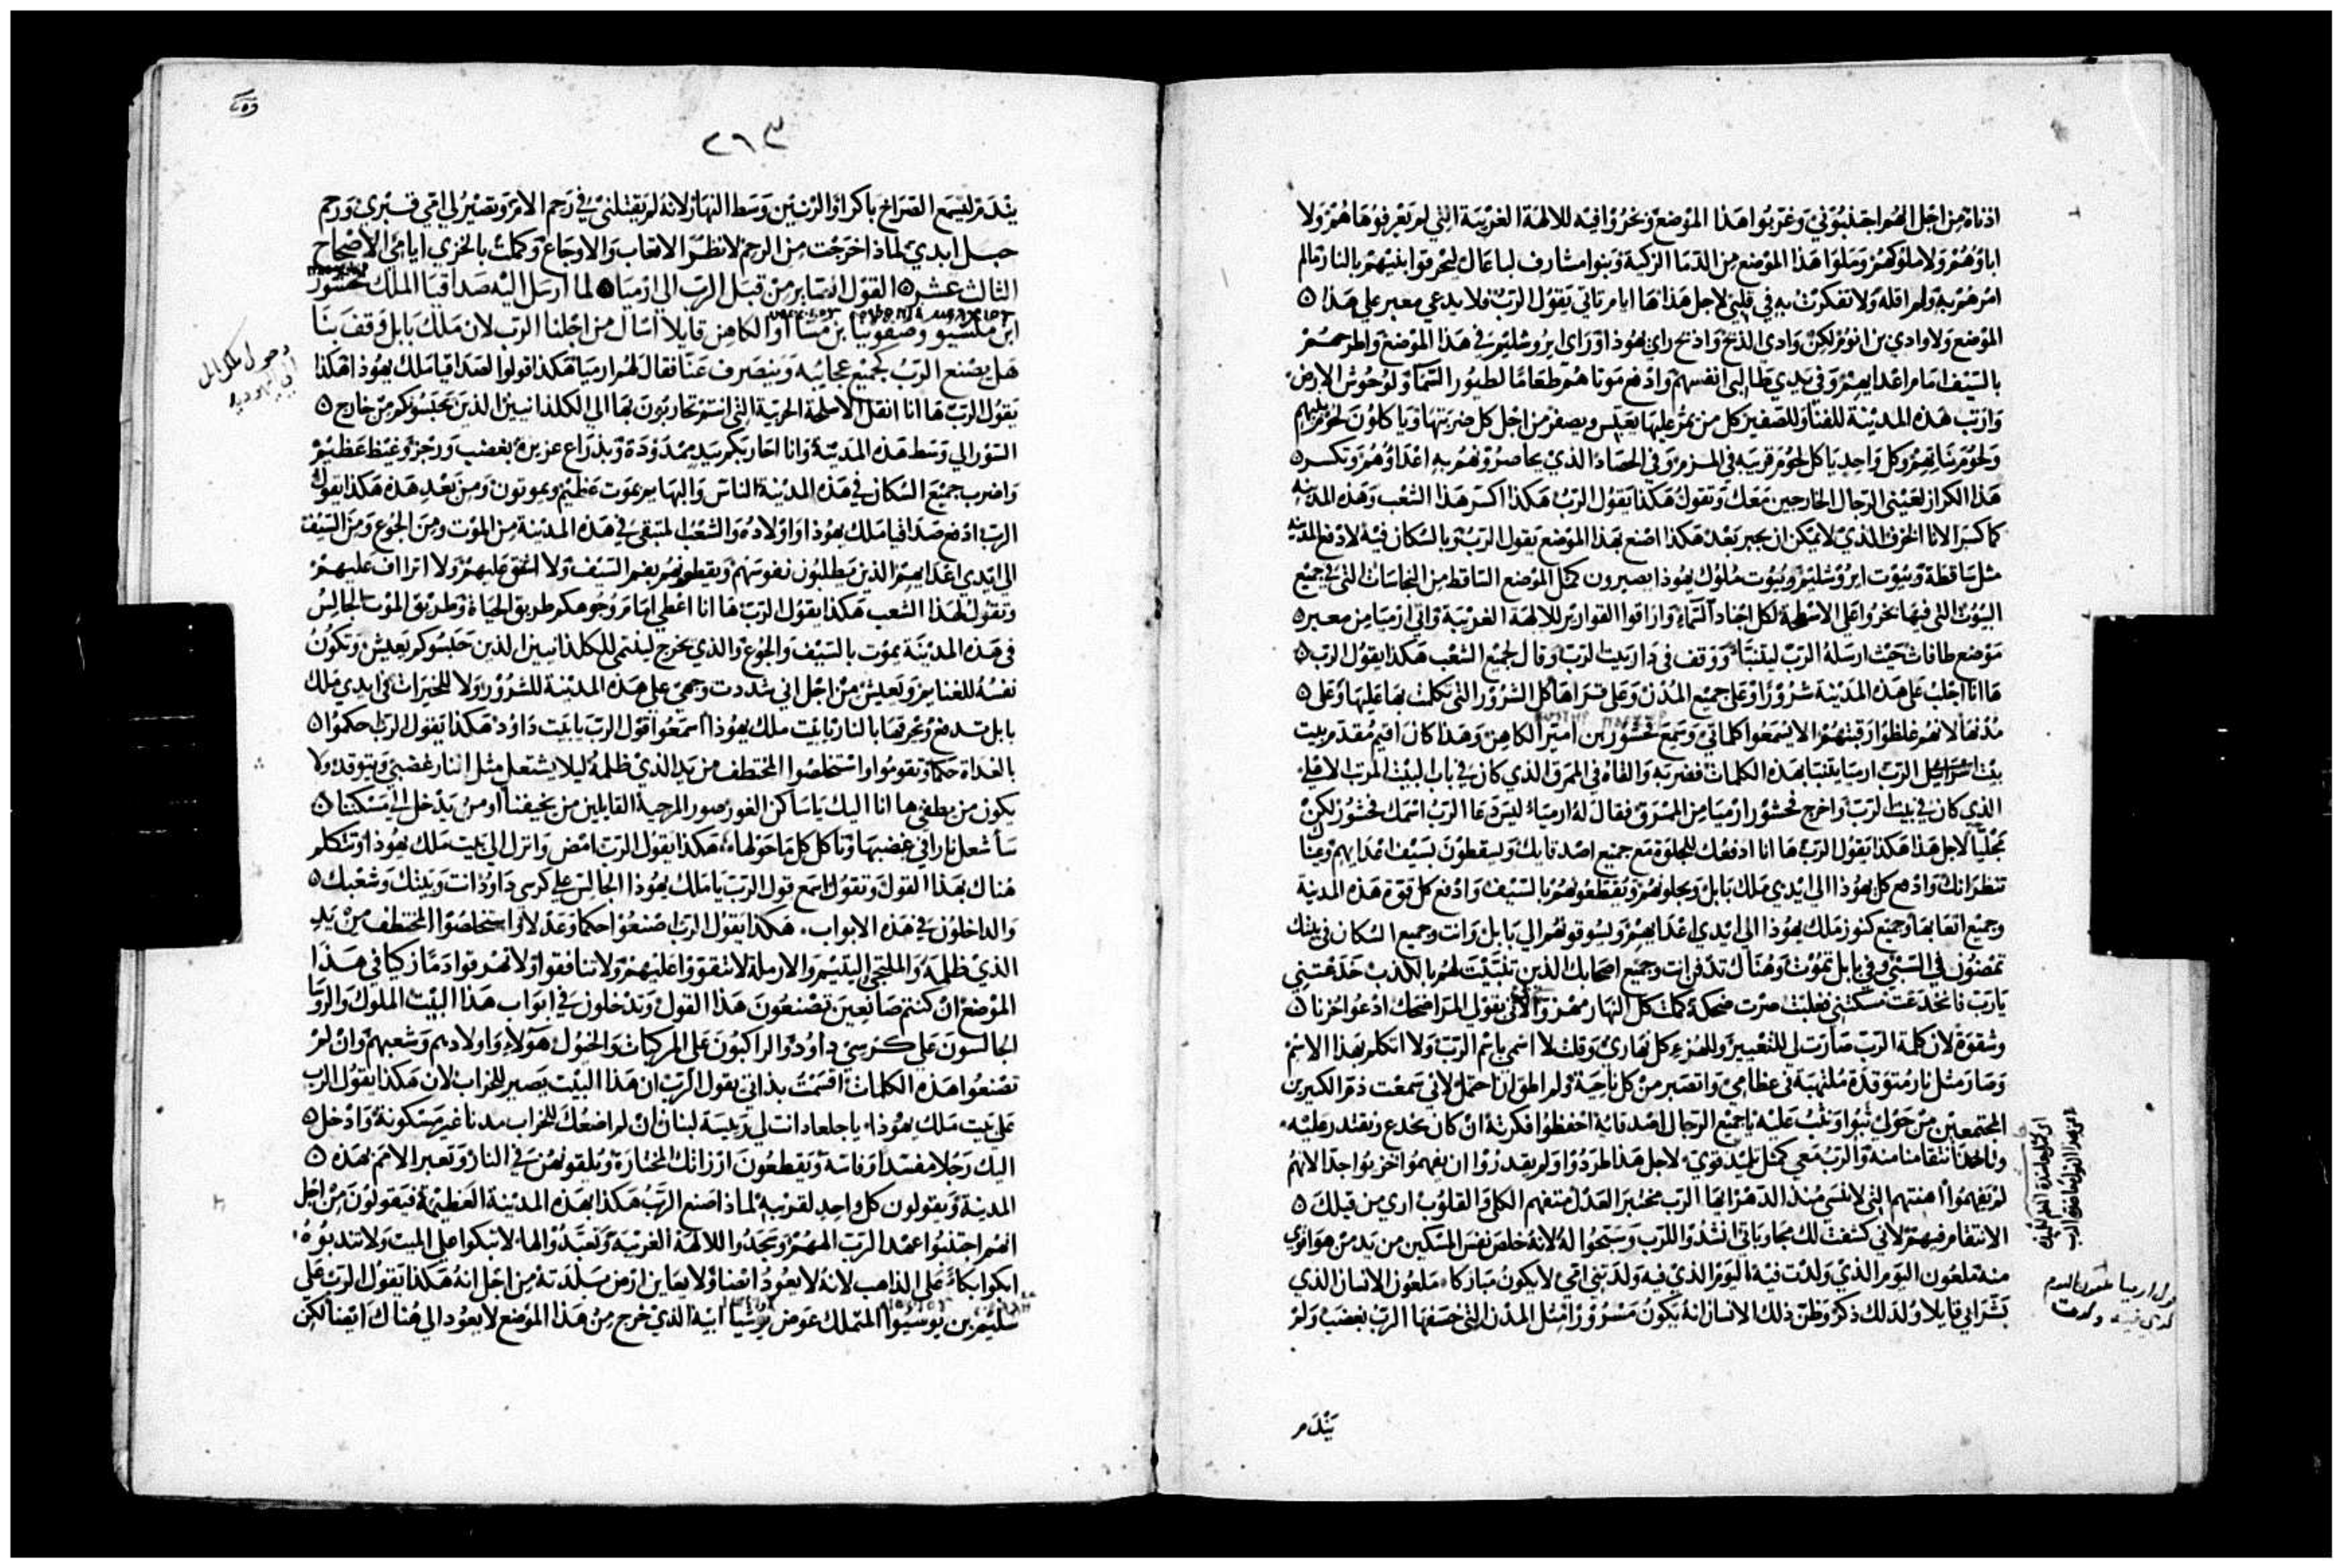 اذناه من اجل انهم اجتنبوني وغربوا هذا الموضع وبخروا فيه للالهة الغريبة التي لم يعرفوها هم ولا
اباوهم ولا ملوكهم وملوا هذا الموضع من الدما الزكية وبنوا مشارف لباعال ليحرقوا بنيهم بالنار مالم
امرهم به ولم اقله ولا تفكرت به في قلبي لاجل هذا ها ايام تاتي يقول الرب فلا يدعي معبر علي هذا
الموضع ولا وادي بن انوم لكن وادي الذبح واذبح راي يهوذا وراي ايروشليم في هذا الموضع واطرحهم
بالسيف امام اعدايهم وفي يدي طالبي انفسهم وادفع موتاهم طعاما لطيور السما ولوحوش الارض
وارتب هذه المدينة للفنا وللصفير كل من يمر عليها يعبس ويصفر من اجل كل ضربتها وياكلون لحوم بنيهم
ولحوم بناتهم وكل واحد ياكل لحوم قريبه في الزمر وفي الحصار الذي يحاصرونهم به اعداوهم وتكسر
هذا الكراز لعيني الرجال الخارجين معك وتقول هكذا يقول الرب هكذا اكسر هذا الشعب وهذه المدينة
كما كسر الانا الخزف الذي لا يمكن ان يجبر بعد هكذا اصنع بهذا الموضع يقول الرب وبالسكان فيه لادفع المدينة
مثل ساقطة وبيوت ايروشليم وبيوت ملوك يهوذا يصيرون كمثل الموضع الساقط من النجاسات التي في جميع
البيوت التي فيها بخروا علي الاسطحة لكل اجناد السماء واراقوا القوارير للالهة الغريبة واتي ارميا من معبر
موضع طافاث حيث ارسله الرب ليتنبا ووقف في دار بيت الرب وقال لجميع الشعب هكذا يقول الرب
ها انا اجلب علي هذه المدينة شرورا وعلي جميع المدن وعلي قراها كل الشرور التي تكلمت بها عليها وعلي
مدنها لانهم غلظوا رقبتهم الا يسمعوا كلماتي وسمع فحشور بن امير الكاهن وهذا كان اقيم مقدم بيت
الرب ارميا يتنبا بهذه الكلمات فضربه والقاه في المرق الذي كان في باب البيت المرتب الاعلي
الذي كان في بيت الرب واخرج فحشور ارميا من المسرق فقال له ارمياء ليس دعا الرب اسمك فحشور لكن
مجليا لاجل هذا هكذا يقول الرب ها انا ادفعك للجلوة مع جميع اصدقايك ويسقطون بسيف اعدايهم وعينا
تنظرانك وادفع كل يهوذا الي ايدي ملك بابل ويجلونهم ويقطعونهم بالسيف وادفع كل قوة هذه المدينة
وجميع اتعابها وجميع كنوز ملك يهوذا الي ايدي اعدايهم ويسوقونهم الي بابل وانت وجميع السكان في بيتك
تمضون في السبي وفي بابل تموت وهناك تدفن انت وجميع اصحابك الذين تنبيت لهم بالكذب خدعتني
يارب فانخدعت مسكتني فغلبت صرت ضحكة كملت كل النهار مهزوا لاني بقول المر اضحك ادعوا خزنا
وشقوة لان كلمة الرب صارت لي للتعيير وللهزء كل نهاري وقلت لا اسمي باسم الرب ولا اتكلم بهذا الاسم
وصار مثل نار متوقدة ملتهبة في عظامي واتصبر من كل ناحية ولم اطق ان احتمل لاني سمعت ذم الكبيرين
المجتمعين من حول ثبوا ونثب عليه ياجميع الرجال اصدقايه احفظوا فكرته ان كان يخدع ونقتدر عليه
وناخذ انتقامنا منه والرب معي كمثل قوي لاجل هذا طردوا ولم يقدروا ان يفهموا خزيوا جدا لانهم
لم يفهموا اهنتهم التي لا تنسي منذ الدهر ايها الرب مختبر العدل متفهم الكلي والقلوب اري من قبلك
الانتقام فيهم لاني كشفت لك مجاوباتي انشدوا للرب وسبحوا له لانه خلص نفس المسكين من يد من هو اقوي
منه ملعون اليوم الذي ولدت فيه اليوم الذي فيه ولدتني امي لا يكون مباركا ملعون الانسان الذي
بشر ابي قايلا ولد لك ذكر وظن ذلك الانسان انه يكون مسرورا مثل المدن التي خسفها الرب بغضب ولم
يندم
٢٦٣
يندم ليسمع الصراخ باكرا والرنين وسط النهار لانه لم يقتلني في رحم الام وتصير لي امي قبري ورحم
حبل ابدي لماذا خرجت من الرحم لانظر الاتعاب والاوجاع وكملت بالخزي ايامي الاصحاح
الثالث عشر القول الصاير من قبل الرب الي ارميا لما ارسل اليه صداقيا الملك فحشور
ابن ملشيو وصفونيا بن مسااو الكاهن قايلا اسال من اجلنا الرب لان ملك بابل وقف بنا
هل يصنع الرب كجميع عجايبه وينصرف عنا فقال لهم ارميا هكذا قولوا لصداقيا ملك يهوذا هكذا
يقول الرب ها انا انقل الاسلحة الحربية التي انتم تحاربون بها الي الكلدانيين الذين يحبسوكم من خارج
السور الي وسط هذه المدينة وانا احاربكم بيد ممدودة وبذراع عزيزة بغضب ورجز وغيظ عظيم
واضرب جميع السكان في هذه المدينة الناس والبهايم بموت عظيم ويموتون ومن بعد هذه هكذا يقول
الرب ادفع صداقيا ملك يهوذا واولاده والشعب المتبقي في هذه المدينة من الموت ومن الجوع ومن السيف
الي ايدي اعدايهم الذين يطلبون نفوسهم ويقطعونهم بفم السيف ولا اشفق عليهم ولا اتراأف عليهم
وتقول لهذا الشعب هكذا يقول الرب ها انا اعطي امام وجوهكم طريق الحياة وطريق الموت الجالس
في هذه المدينة يموت بالسيف والجوع والذي يخرج لينتمي للكلدانيين الذين حبسوكم يعيش وتكون
نفسه للغنايم ويعيش من اجل اني شددت وجهي علي هذه المدينة للشرور ولا للخيرات في ايدي ملك
بابل تدفع ويحرقها بالنار يا بيت ملك يهوذا اسمعوا قول الرب يا بيت داود هكذا يقول الرب احكموا
بالغداة حكما وتقوموا واستخلصوا المختطف من يد الذي ظلمه ليلا يشتعل مثل النار غضبي ويتوقد ولا
يكون من يطفي ها انا اليك ياساكن الغور صور المرحبة القايلين من يخيفنا او من يدخل الي مسكننا
ساشعل نارا في غضبها وتاكل كل ما حولها هكذا يقول الرب امض وانزل الي بيت ملك يهوذا وتتكلم
هناك بهذا القول وتقول اسمع قول الرب يا ملك يهوذا الجالس علي كرسي داود انت وبيتك وشعبك
والداخلون في هذه الابواب هكذا يقول الرب اصنعوا حكما وعدلا واستخلصوا المختطف من يد
الذي ظلمه والملتجي واليتيم والارملة لا تتقووا عليهم ولا تنافقوا ولا تهرقوا دما زكيا في هذا
الموضع ان كنتم صانعين تصنعون هذا القول وتدخلون في ابواب هذا البيت الملوك والروسا
الجالسون علي كرسي داود والراكبون علي المركبات والخيول هولاء واولادهم وشعبهم وان لم
تصنعوا هذه الكلمات اقسمت بذاتي يقول الرب ان هذا البيت يصير للخراب لان هكذا يقول الرب
علي بيت ملك يهوذا ياجلعاد انت لي رييسة لبنان ان لم اضعك للخراب مدنا غير مسكونة وادخل
اليك رجلا مفسدا وفاسه ويقطعون ارزانك المختارة ويلقونهن في النار وتعبر الامم بهذه
المدينة ويقولون كل واحد لقريبه لماذا صنع الرب هكذا بهذه المدينة العظيمة فيقولون من اجل
انهم اجتنبوا عهد الرب الههم وسجدوا للالهة الغريبة وتعبدوا لها لا تبكوا علي الميت ولا تندبوه
ابكوا بكاء علي الذاهب لانه لا يعود ايضا ولا يعاين ارض بلدته من اجل انه هكذا يقول الرب علي
سليم بن يوسيوا المتملك عوض يوشيا ابيه الذي خرج من هذا الموضع لا يعود الي هناك ايضا لكن